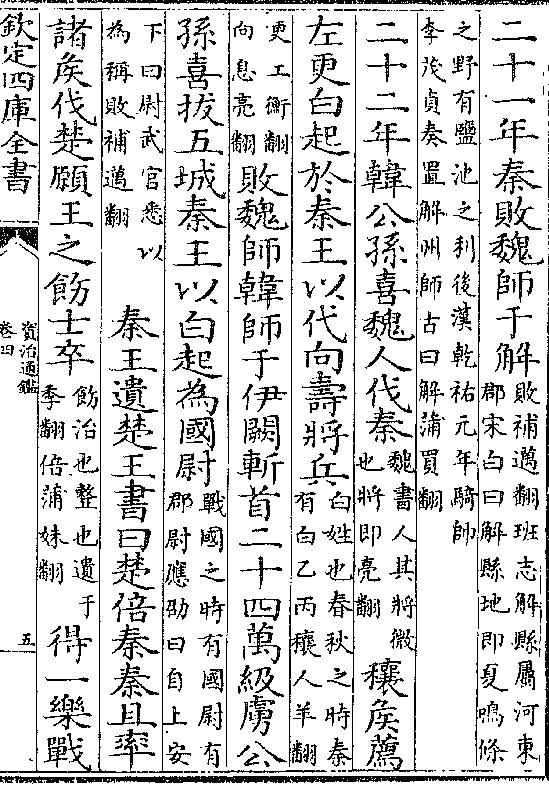 二十一年秦敗魏師于解敗補邁翻班志解縣屬河東郡宋白曰解縣地即夏鳴條
之野有鹽池之利後漢乾祐元年騎帥李茂貞奏置解州師古曰解蒲買翻
二十二年韓公孫喜魏人伐秦魏書人其將微也將即亮翻穰矦薦
左更白起於秦王以代向壽將兵白姓也春秋之時秦有白乙丙穰人羊翻
更工衡翻向息亮翻敗魏師韓師于伊闕斬首二十四萬級虜公
孫喜拔五城秦王以白起為國尉戰國之時有國尉有郡尉應劭曰自上安
下曰尉武官悉以為稱敗補邁翻秦王遺楚王書曰楚倍秦秦且率
諸矦伐楚願王之飭士卒飭治也整也遺于季翻倍蒲妹翻得一樂戰
欽定四庫全書
資治通鑑
卷四
五